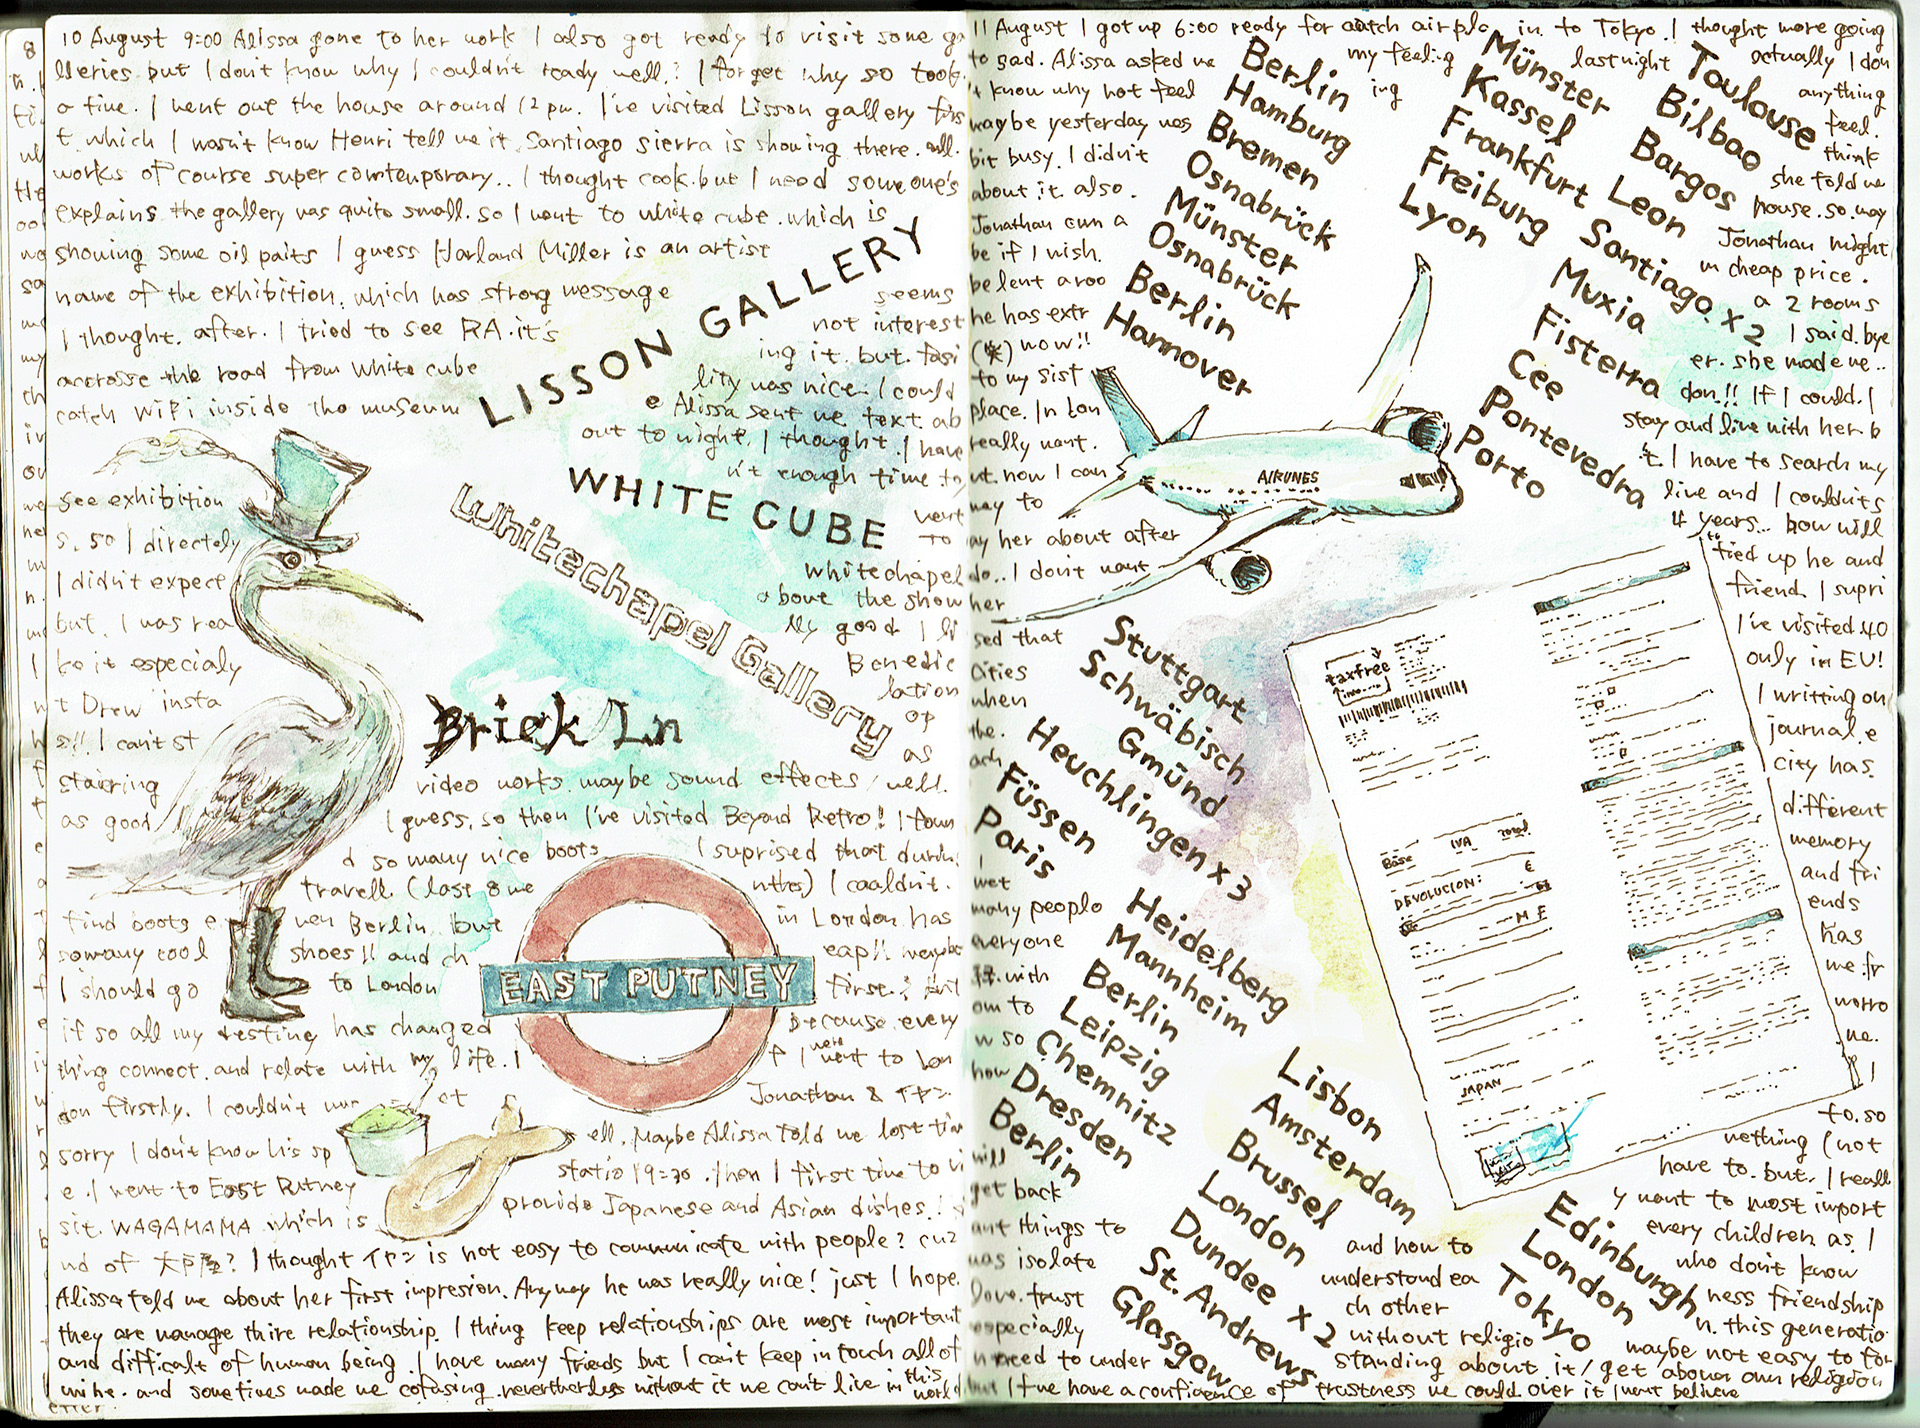 10 August 9:00 Alissa gone to her work I also got ready to visit some ga
lleries but I don't know why I couldn't ready well? I forget why so took
a time. I went out the house around 12 pm. I've visited Lisson gallery firs
t which I wasn't know Henri tell me it. Santiago sierra is showing there. all.
works of course super comtenporary.. I thought cook. but I need someone's
explains the gallery was quite small. so I went to white cube. which is
showing some oil paits I guess Harland Miller is an artist
name of the exhibition. which has strong message
I thought. after. I tried to see RA. it's
accrosse the road from white cube
catch WiFi inside the museum
LISSON GALLERY
seems
not interest
ing it. but. fasi
lity was nice. I could
e Alissa sent me text ab
out to night. I thought I have
n't enough time to
WHITE CUBE
Whitechapel Gallery
see exhibition
s. so I directely
I didn't expect
but. I was rea
ke it especialy
t Drew insta
s!! I can't st
stairing
as good
went
to
whitechapel
about the show
lly good I li
Benedic
lation
op
as
Brick Ln
video works. maybe sound effects well.
I guess. so then I've visited Beyond Retro! I foun
d so many nice boots I suprised that durin
travell. (last 8 mo nthes) I coaldn't.
find boots e ven Berlin. but in London has
so many cool shoes!! and ch eap!! maybe
I should go to London first? but
if so all my desting has changed because every
thing connect. and relate with my life. I f I were went to Lon
don firstly. I couldn't met Jonathan & イヤン
EAST PUTNEY
sorry I don't know his sp ell. Maybe Alissa told me lost tim
e. I went to East Putney statio 19:30. then I first time to vi
sit. WAGAMAMA which is provide Japanese and Asian dishes!
nd of 大戸屋? I thought イヤン is not easy to communicate with people? cuz
Alissa told me about her first impresion. Anyway he was really nice! just I hope.
they are manage thire relationship. I thing keep relationships are most important
and difficalt of human being. I have many friends but I can't keep in touch all of
and sometimes made me cofusing. nevertherless without it we can't live in this world
11 August I got up 6:00 ready for catch airpla in to Tokyo. I thought more going
to sad. Alissa asked me my feeling last night actually I don
't know why not feel ing anything
maybe yesterday was feel.
bit busy. I didn't think
about it. also. she told me
Jonathan own a house. so. may
be if I wish. Jonathan might
be lent a roo m cheap price.
he has extr a 2 rooms
(笑) wow!! I said. bye
to my sist er. she made me..
place. In Lon don!! If I could. I
really want. stay and live with her b
ut. now I can 't. I have to search my
way to live and I couldn't s
ay her about after 4 years... how will
do.. I don't want to tied up he and
her friend. I supri
sed that I've visited 40
Cities only in EU!
when I writting on
the. journal. e
ach city has.
different
memory
and fri
ends
has
Berlin
Hamburg
Bremen
Osnabrück
Münster
Osnabrück
Berlin
Hannover
Münster
Kassel
Frankfurt
Freiburg
Lyon
Toulouse
Bilbao
Bargos
Leon
Santiago x 2
Muxia
Fisterra
Cee
Pontevedra
Porto
AIRLINES
Stuttgart
Schwäbisch
Gmünd
Heuchlingen x 3
Füssen
Paris
Heidelberg
Mannheim
Berlin
Leipzig
Chemnitz
Dresden
Berlin
Lisbon
Amsterdam
Brussel
London
Dundee x 2
St. Andrews
Glasgow
Edinburgh
London
Tokyo
taxfree
Base IVA Total
DEVOLUCION: €
JAPAN
I met
many people
everyone
it. with me. fr
om to
how
will
get back to. so
mething (not
have to. but. I reall
y want to most import
ant things to every children as. I
was isolate and how to who don't know
love. trust understand ea ness friendship
especially ch other n. this generatio
without religio maybe not easy to
need to under standing about it/ get about own religion
but I have a confidence of trustness we could over it I want believe